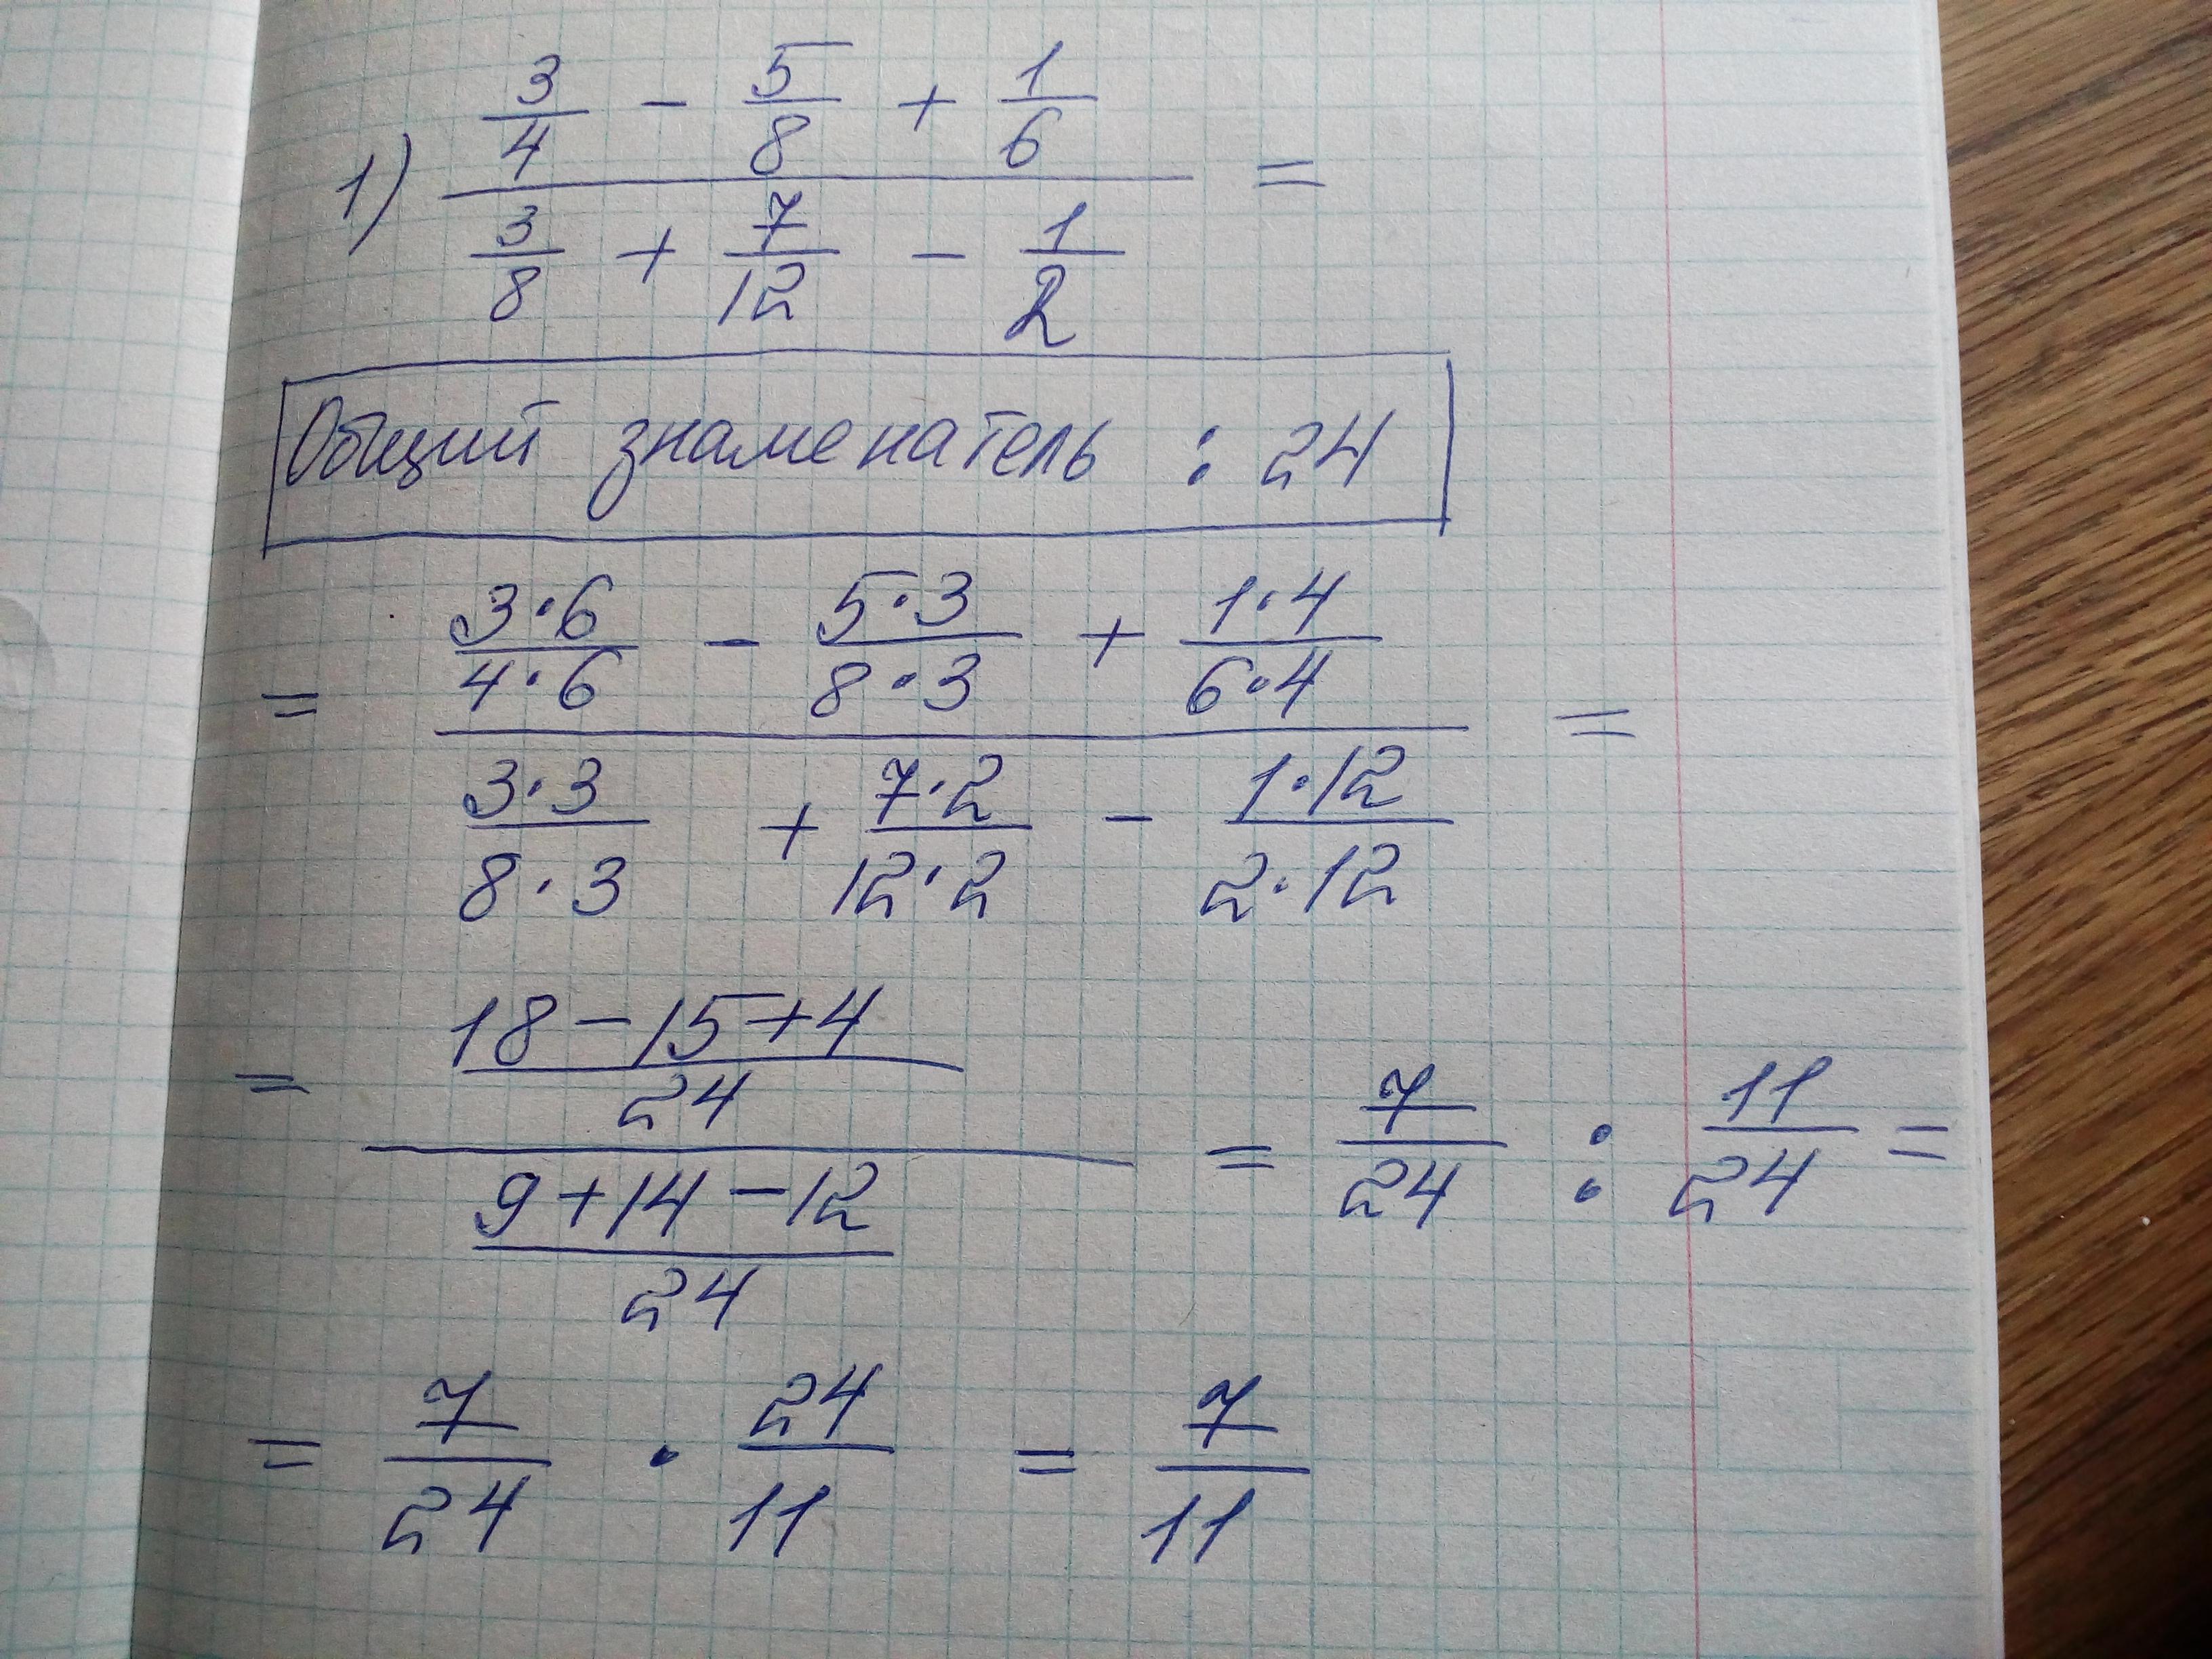 1) (3/4 - 5/8 + 1/6) / (3/8 + 7/12 - 1/2) =
Общий знаменатель : 24
= (3·6/4·6 - 5·3/8·3 + 1·4/6·4) / (3·3/8·3 + 7·2/12·2 - 1·12/2·12) =
= (18-15+4/24) / (9+14-12/24) = 7/24 : 11/24 =
= 7/24 · 24/11 = 7/11